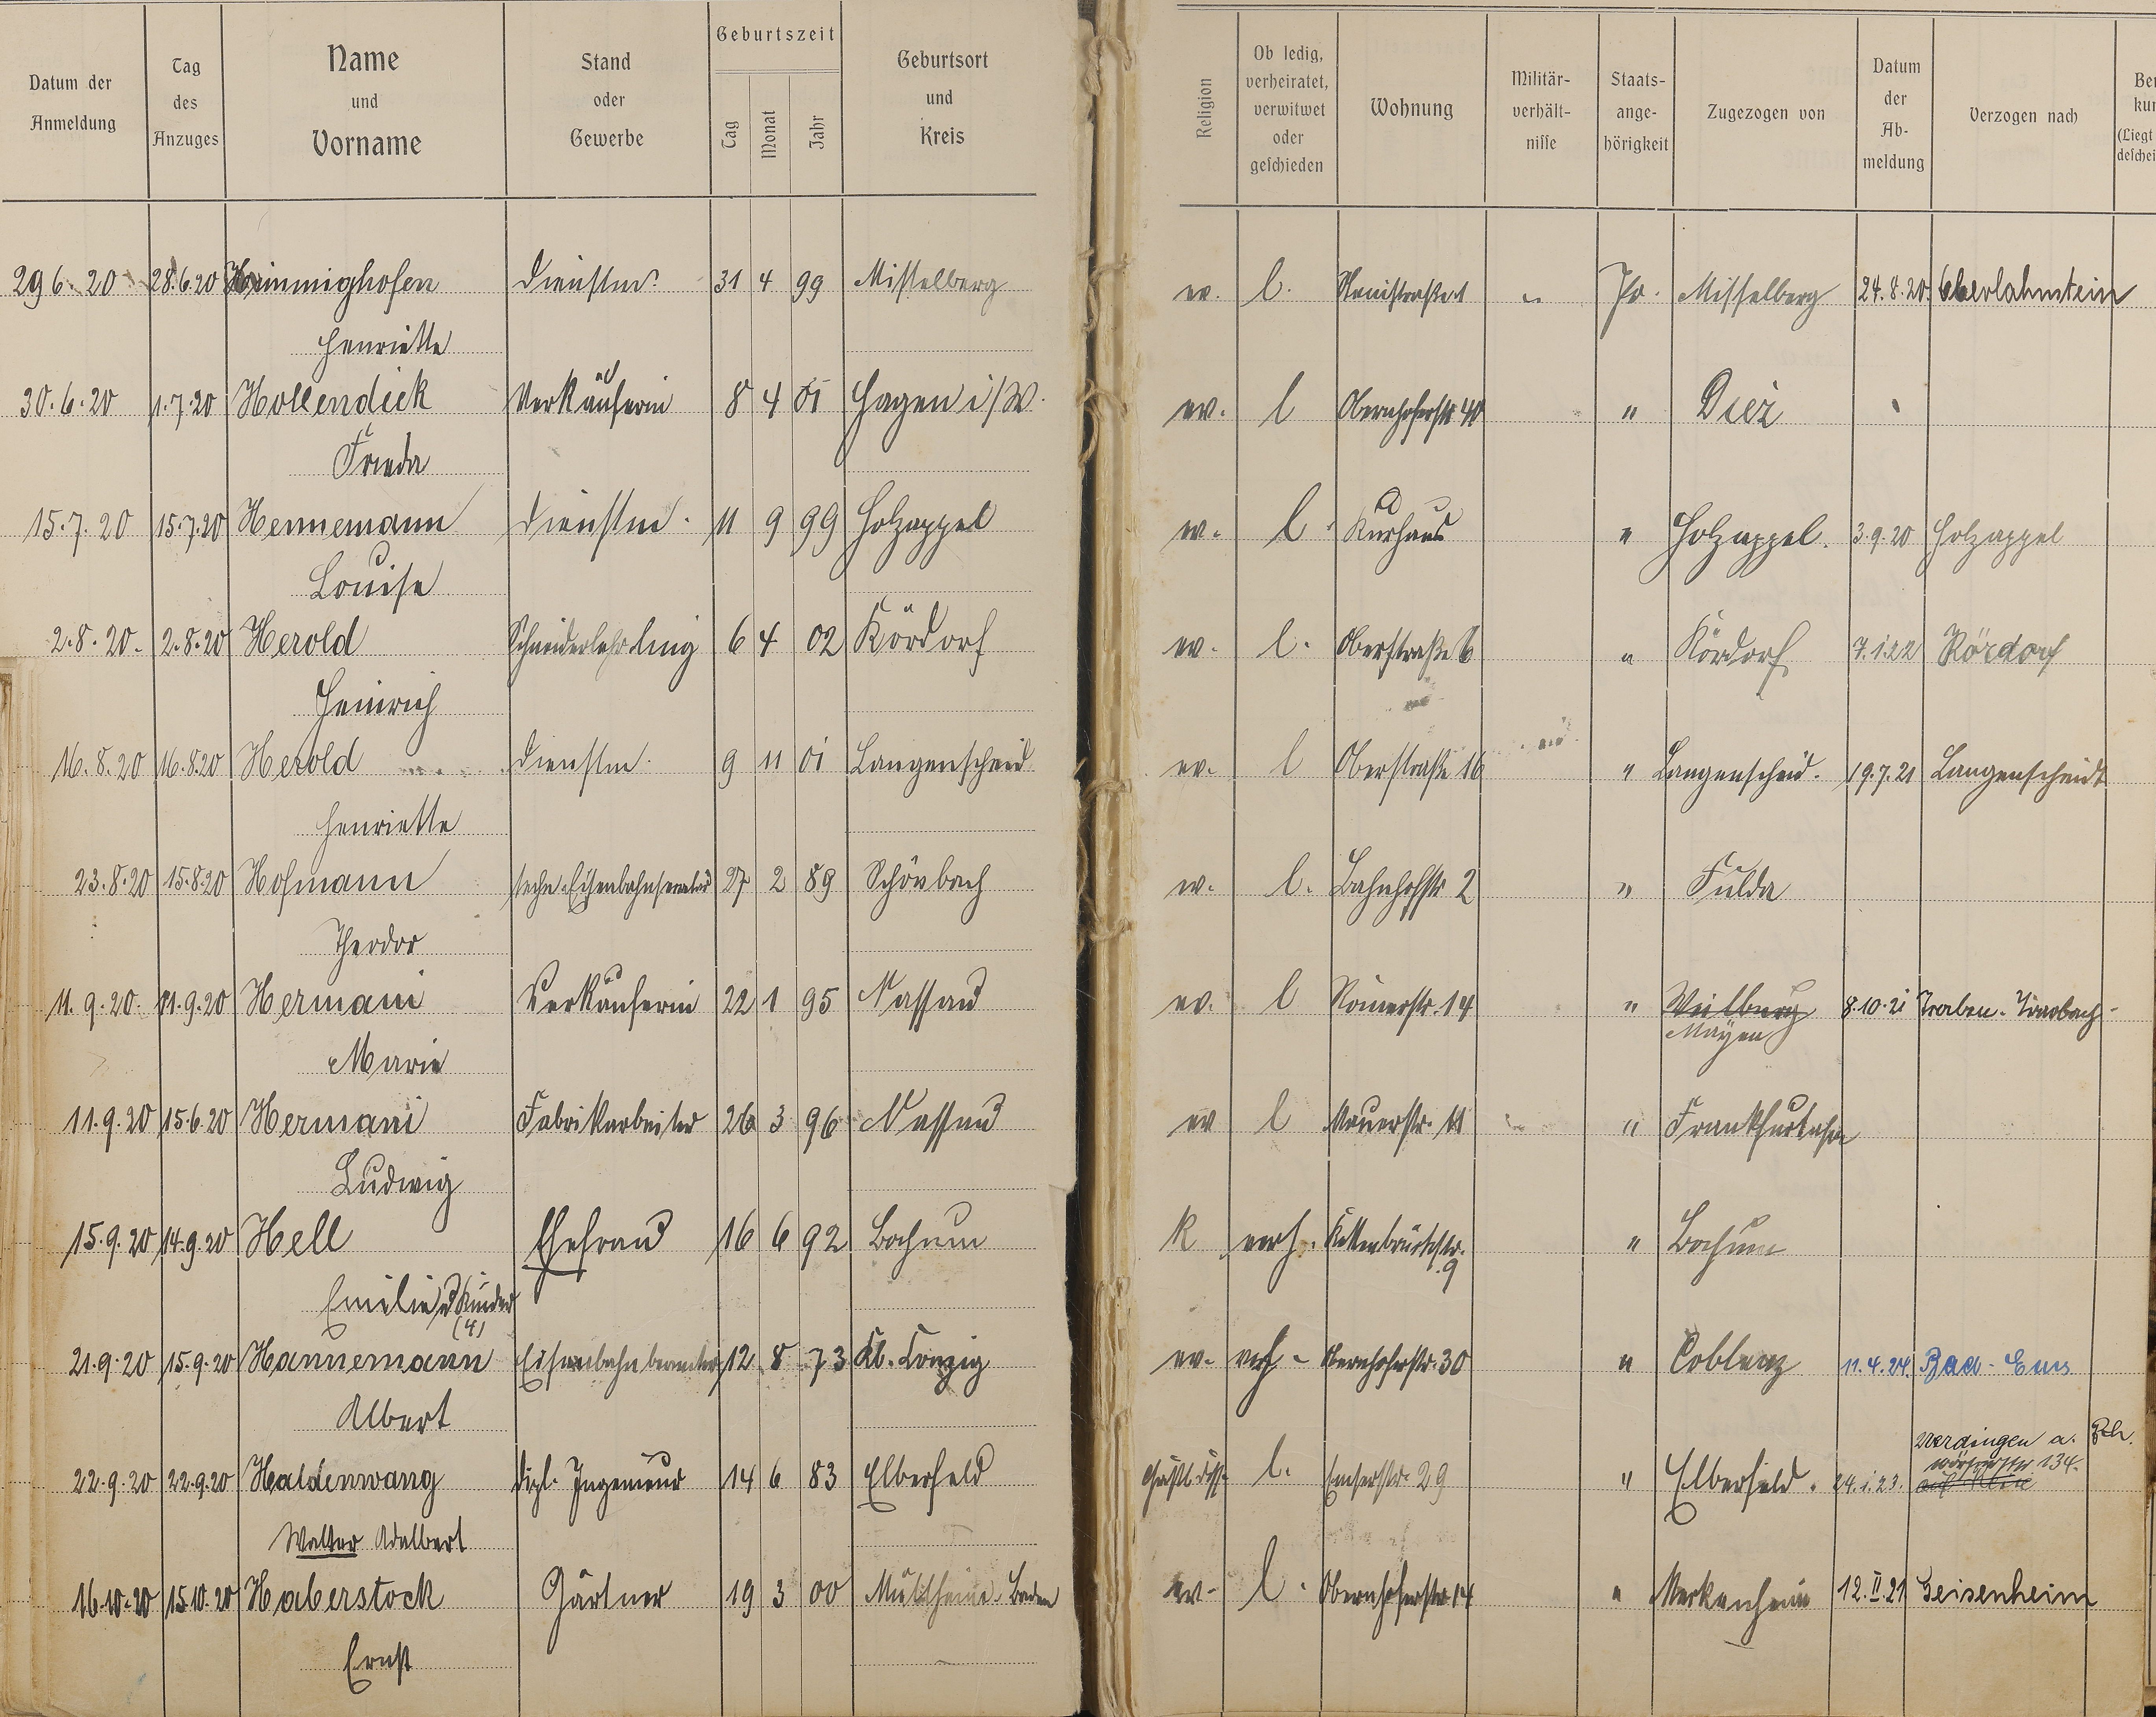 Datum der Anmeldung | Tag des Anzuges | Name und Vorname | Stand oder Gewerbe | Geburtszeit Tag Monat Jahr | Geburtsort und Kreis | Religion | Ob ledig, verheiratet, verwitwet oder geschieden | Wohnung | Militär-verhält-nisse | Staats-ange-hörigkeit | Zugezogen von | Datum der Ab-meldung | Verzogen nach
29 6. 20 28.6.20 Himmighofen Dienstm. 31 4 99 Misselberg ev. l. " Pr. Misselberg 24.8.20. Oberlahnstein
Henriette
30.6.20 1.7.20 Hollendick Verkäuferin 8 4 01 Hagen i/W. ev. l Obernhoferstr 40 " Diez
Frieda
15.7.20 15.7.20 Hennemann Dienstm. 11 9 99 Holzappel ev. l. Kurhaus " Holzappel. 3.9.20 Holzappel
Louise
2.8.20. 2.8.20 Herold Schneiderlehrling 6 4 02 Kördorf ev. l. Oberstraße 6 " Kördorf 7.1.22 Kördorf
Heinrich
16.8.20 16.8.20 Herold Dienstm. 9 11 01 Langenscheid ev. l Oberstraße 16 " Langenscheid. 19.7.21 Langenscheidt
Henriette
23.8.20 15.8.20 Hofmann techn. 27 2 89 Schönbach ev. l. Bahnhofstr 2 " Fulda
Theodor
11.9.20. 11.9.20 Hermani Verkäuferin 22 1 95 Nassau ev. l Römerstr. 14 " Weilburg 8.10.21 Traben-Trarbach
Mayen
Marie
11.9.20 15.6.20 Hermani Fabrikarbeiter 26 3 96 Nassau ev l Mauerstr. 11 " Frankfurt
Ludwig
15.9.20 14.9.20 Hell Ehefrau 16 6 92 Bochum K verh. Kettenbrückstr. 9 " Bochum
Emilie u Kinder
(4)
21.9.20 15.9.20 Hannemann Eisenbahnbeamter 12 8 73 Kl. ev. verh. 30 " Coblenz 11.4.24. Bad-Ems
Albert
22.9.20 22.9.20 Haldenwang Dipl. Ingenieur 14 6 83 Elberfeld l. Emserstr. 29 " Elberfeld. 24.1.23. Uerdingen a. Rh.
134.
Walter Adalbert
16.10.20 15.10.20 Haberstock Gärtner 19 3 00 Müllheim. Baden ev. l. Obernhoferstr 14 " Meckenheim 12.II.21 Geisenheim
Ernst